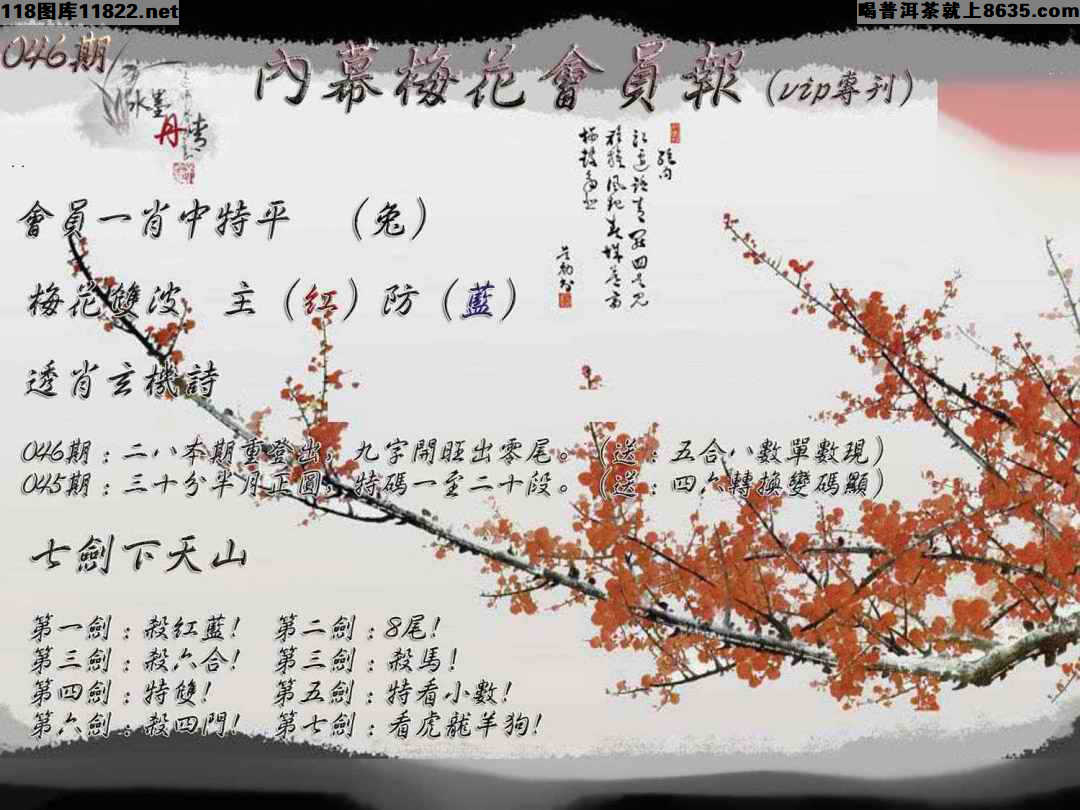 118图库11822.net
喝普洱茶就上8635.com
046期
內幕梅花會員報(vip專刊)
水墨
丹青
會員一肖中特平 （兔）
梅花雙波 主（紅）防（藍）
透肖玄機詩
046期：二八本期重登出，九字開旺出零尾。（送：五合八數單數現）
045期：三十分半月正圓，特碼一至二十段。（送：四六轉換變碼顯）
七劍下天山
第一劍：殺紅藍! 第二劍：8尾!
第三劍：殺六合! 第三劍：殺馬!
第四劍：特雙! 第五劍：特看小數!
第六劍：殺四門! 第七劍：看虎龍羊狗!